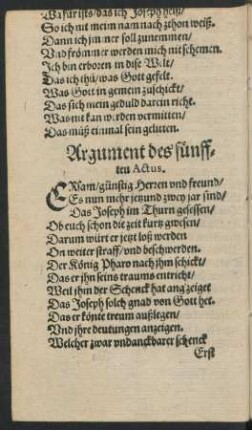 Wafür ists/ das ich Joseph heiß/
So ich mit meim nam nach zihon weiß.
Dann ich jm̄er soll zunemmen/
Vnd frömmer werden mich nit schemen.
Ich bin erboren in dise Welt/
Das ich thü/ was Gott gefelt.
Was Gott in gemein zuschickt/
Das sich mein gedult darein richt.
Was nit kan werden vermitten/
Das müß einmal sein gelitten.
Argument des fünff-
ten Actus.
ERsam/ günstig Herren vnd freund/
Es nun mehr jetzund zwey jar sind/
Das Joseph im Thurn gesessen/
Ob euch schon die zeit kurtz gwesen/
Darum würt er jetzt loß werden
On weiter straff/ vnd beschwerden.
Der König Pharo nach jhm schickt/
Das er jhn seins traums entricht/
Weil jhm der Schenck hat angzeiget
Das Joseph solch gnad von Gott het.
Das er könte treum außlegen/
Vnd jhre deutungen anzeigen.
Welcher zwar vndanckbarer schenck
Erst